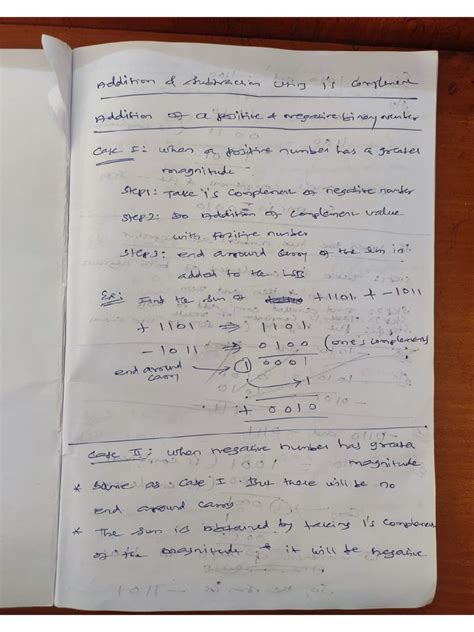 Addition & Subtraction Using 1's Complement
Addition of a positive & negative binary number
Case I: When a positive number has a greater
magnitude
Step1: Take 1's Complement of negative number
Step2: Do Addition of Complement value
with positive number
Step3: end around carry of the sum is
added to the LSB
Ex: Find the sum of +1101 & -1011
+ 1101 ⇒ 1101
- 1011 ⇒ 0100 (one's complement)
end around carry ① 0001
1
+ 0010
Case II: when negative number has greater
magnitude
* Same as case I But there will be no
end around carry
* The sum is obtained by taking 1's complement
of the magnitude & it will be negative